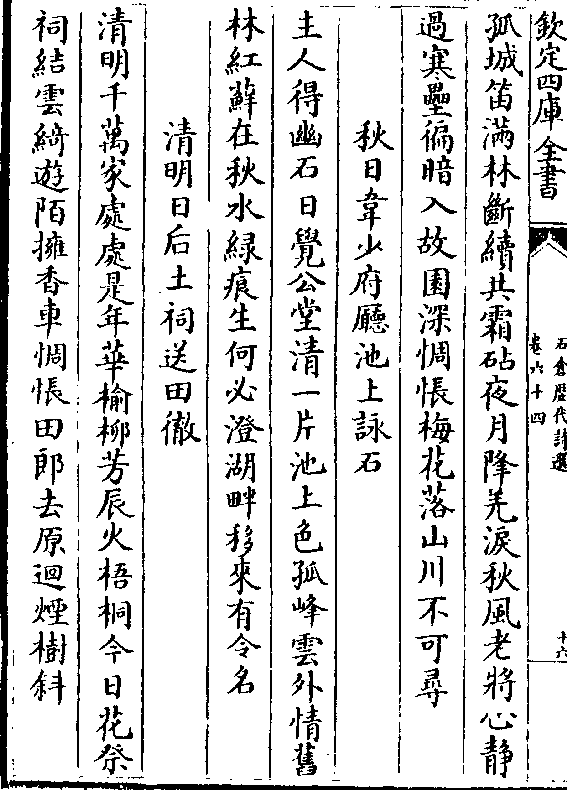 欽定四庫全書
石倉歴代詩選
卷六十四
十六
孤城笛滿林斷續共霜砧夜月降羌淚秋風老將心静
過寒壘徧暗入故園深惆悵梅花落山川不可尋
秋日韋少府廳池上詠石
主人得幽石日覺公堂清一片池上色孤峰雲外情舊
林紅蘚在秋水緑痕生何必澄湖畔移來有令名
清明日后土祠送田徹
清明千萬家處處是年華榆柳芳辰火梧桐今日花祭
祠結雲綺遊陌擁香車惆悵田郎去原迴煙樹斜